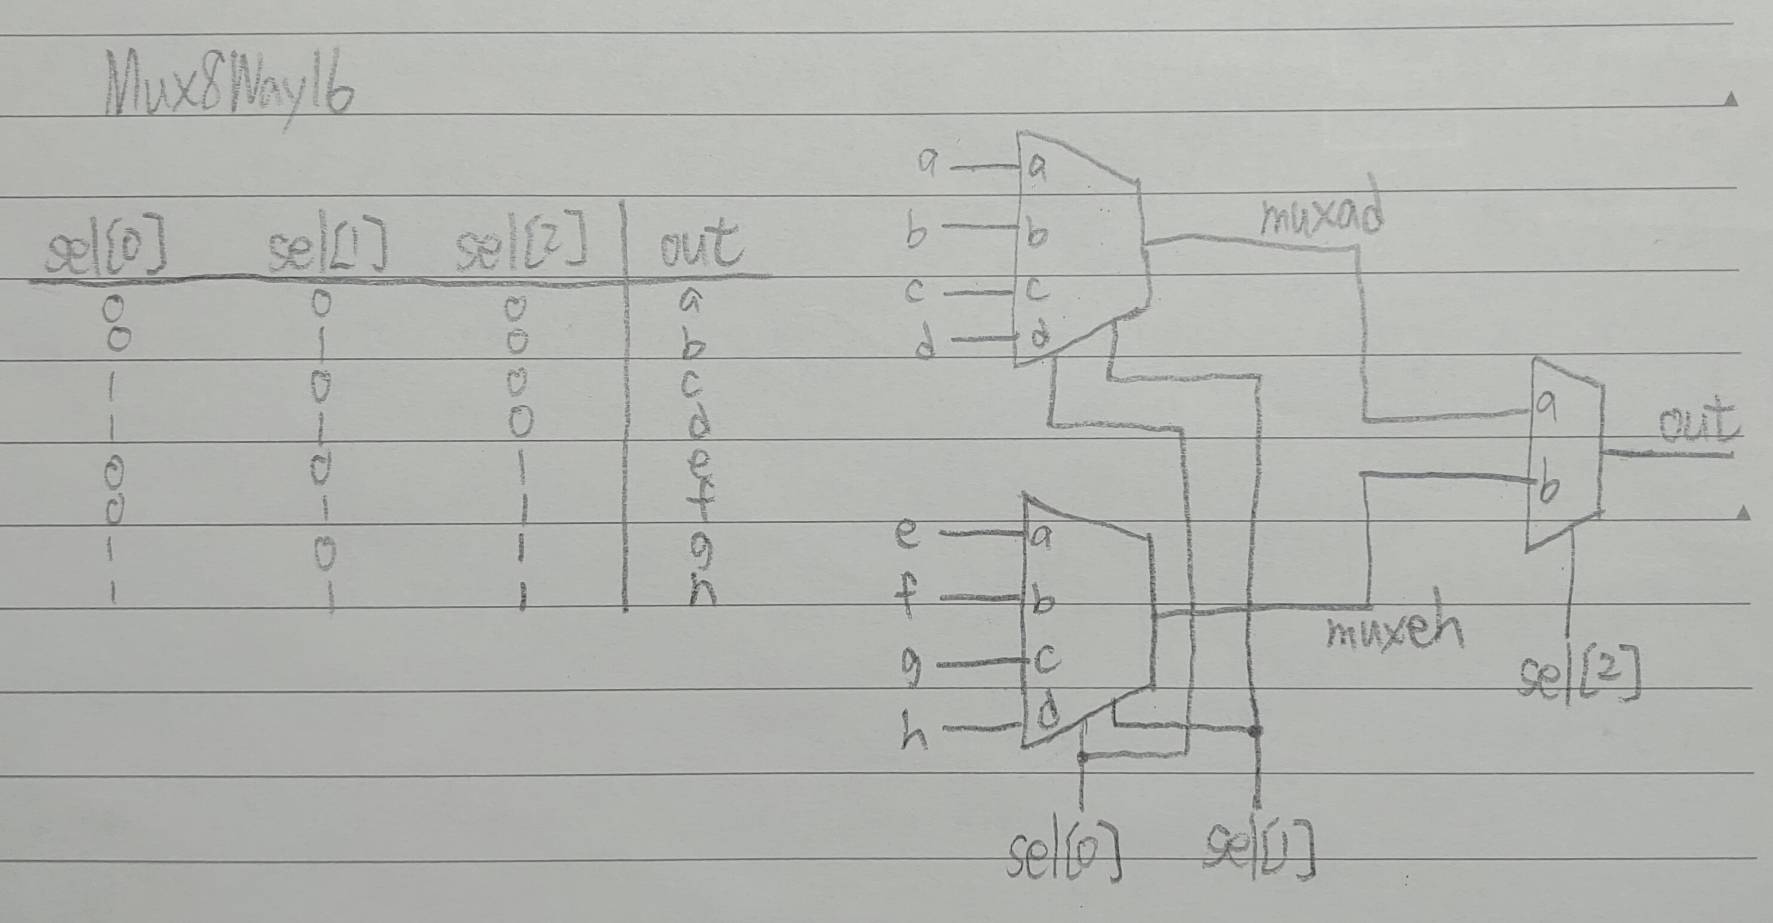 Mux8Way16
sel[0] sel[1] sel[2] out
0 0 0 a
0 1 0 b
1 0 0 c
1 1 0 d
0 0 1 e
0 1 1 f
1 0 1 g
1 1 1 h
a a
b b
c c
d d
muxad
e a
f b
g c
h d
muxeh
sel[0] sel[1]
a
b
out
sel[2]